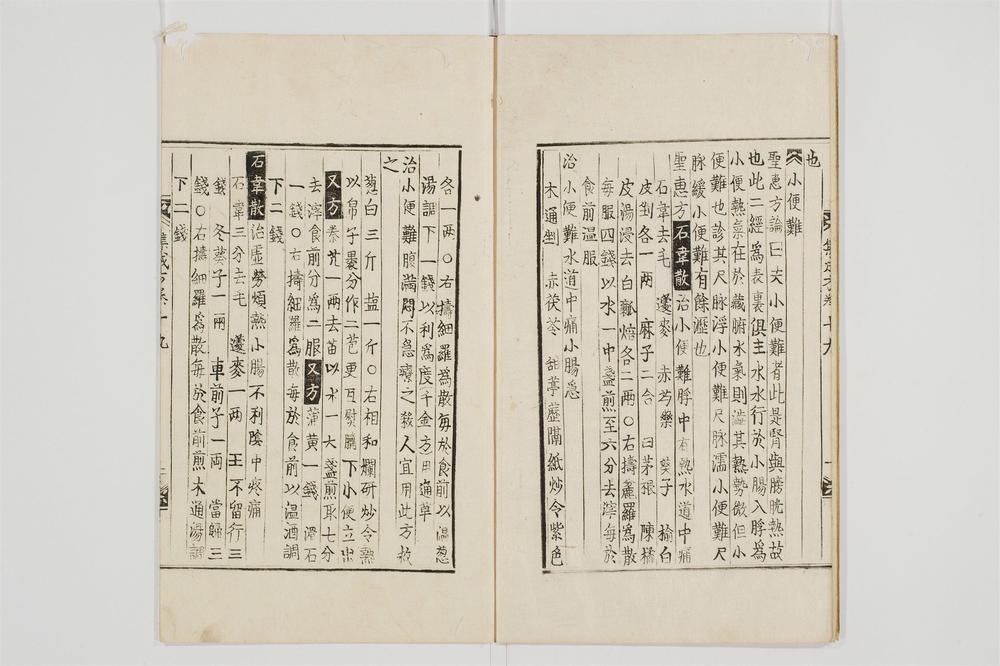 也
小便難
聖惠方論曰夫小便難者此是腎與膀胱熱故
也此二經為表裏俱主水水行於小腸入脬為
小便熱氣在於藏腑水氣則澁其熱勢微但小
便難也診其尺脉浮小便難尺脉濡小便難尺
脉緩小便難有餘瀝也
聖惠方石韋散治小便難脬中有熱水道中痛
石韋去毛 蘧麥 赤芍藥 葵子 榆白
皮剉各一兩 麻子二合 白茅根 陳橘
皮湯浸去白瓤焙各二兩○右擣麁羅為散
每服四錢以水一中盞煎至六分去滓每於
食前温服
治小便難水道中痛小腸急
木通剉 赤茯苓 甜葶藶隔紙炒令紫色
各一兩○右擣細羅為散每於食前以温葱
湯調下一錢以利為度千金方用通草
治小便難腹滿悶不急療之殺人宜用此方救
之
葱白三斤 盐一斤○右相和爛研炒令熱
以帛子裹分作二苞更互熨臍下小便立出
又方秦艽一兩去苗以水一大盞煎取七分
去滓食前分為二服又方蒲黄一錢 滑石
一錢○右擣細羅為散每於食前以温酒調
下二錢
石韋散治虛勞煩熱小腸不利陰中疼痛
石韋三分去毛 蘧麥一兩 王不留行三
錢 冬葵子一兩 車前子一両 當歸三
錢○右擣細羅為散每於食前煎木通湯調
下二錢
集成方卷十九